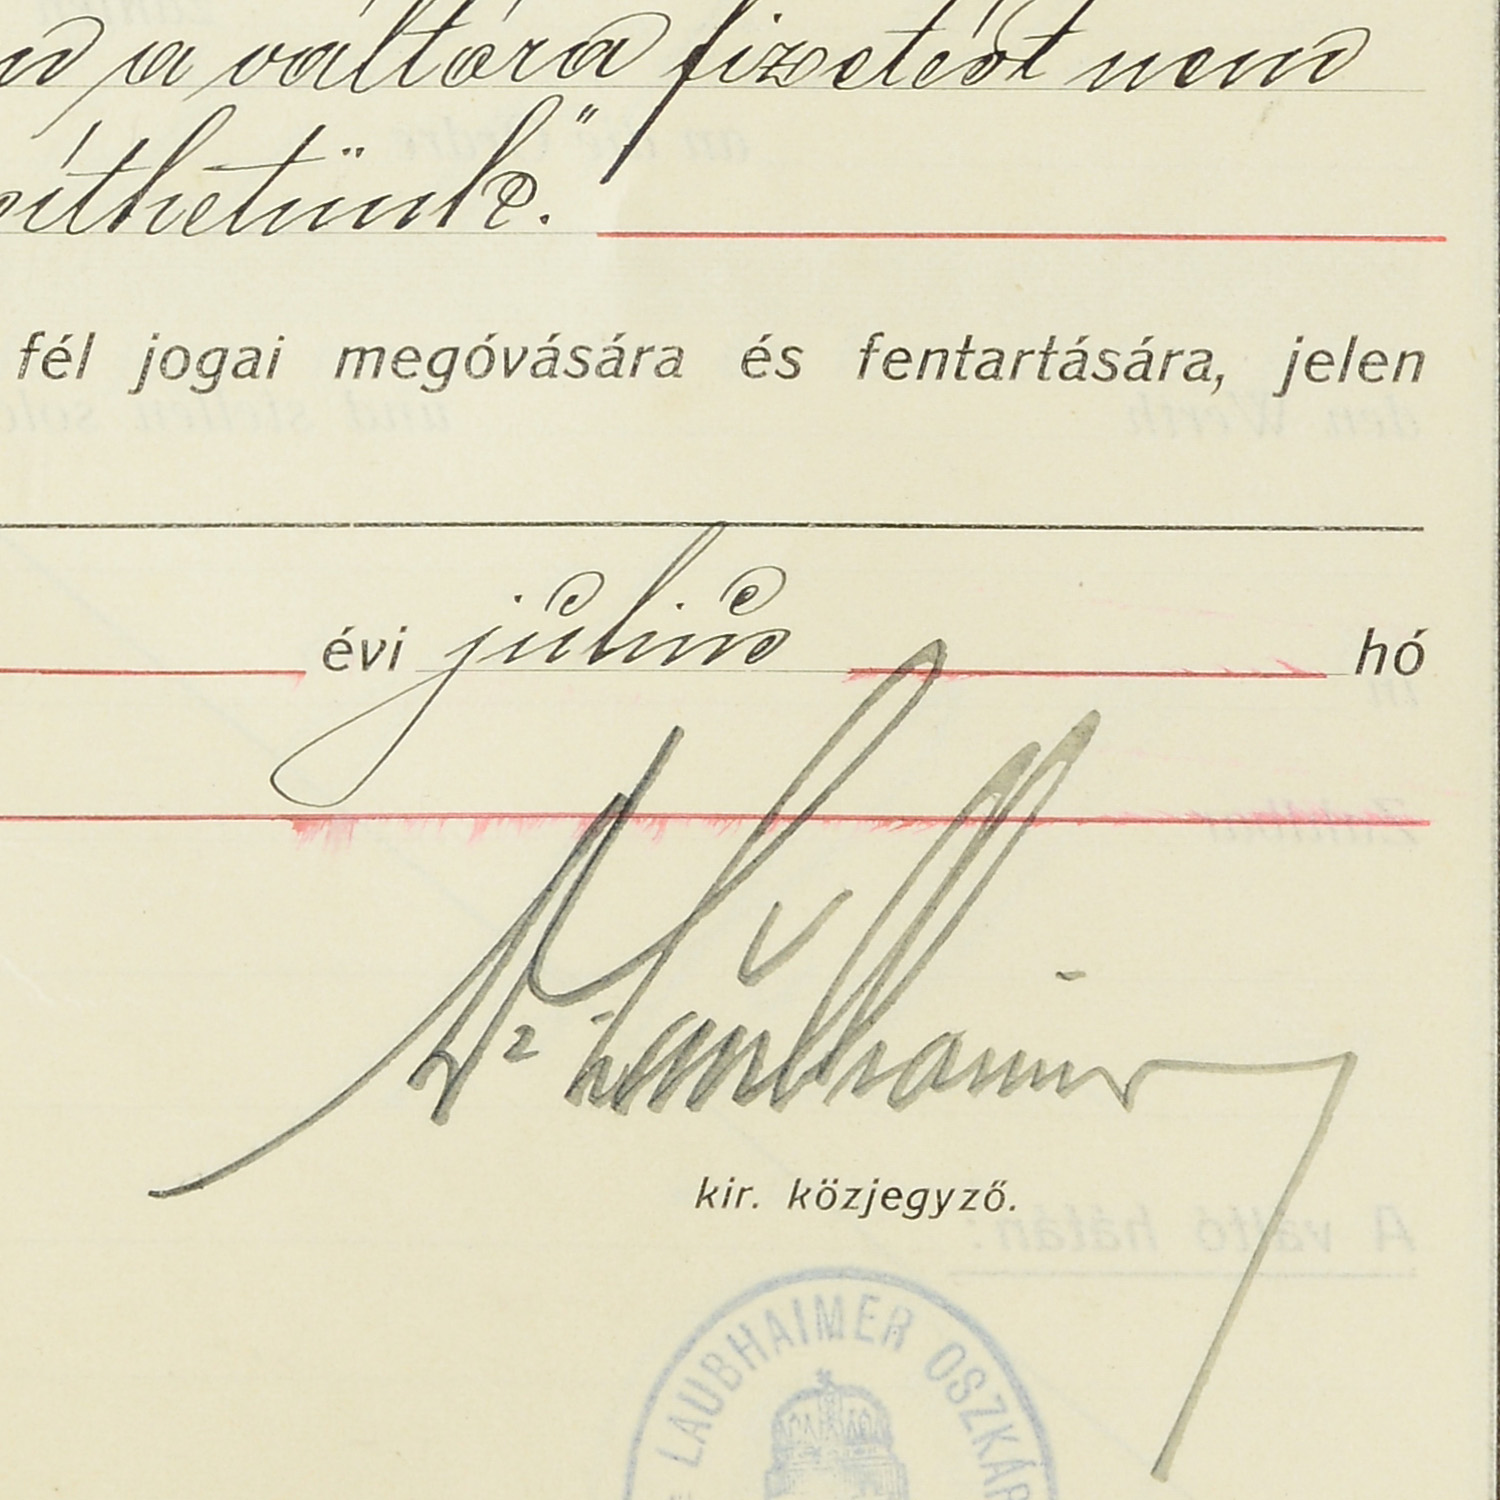 a váltóra fizetést nem
síthetünk".
fél jogai megóvására és fentartására, jelen
évi július hó
Dr Laubhaimer
kir. közjegyző.
LAUBHAIMER OSZKÁR
A váltó hátán: